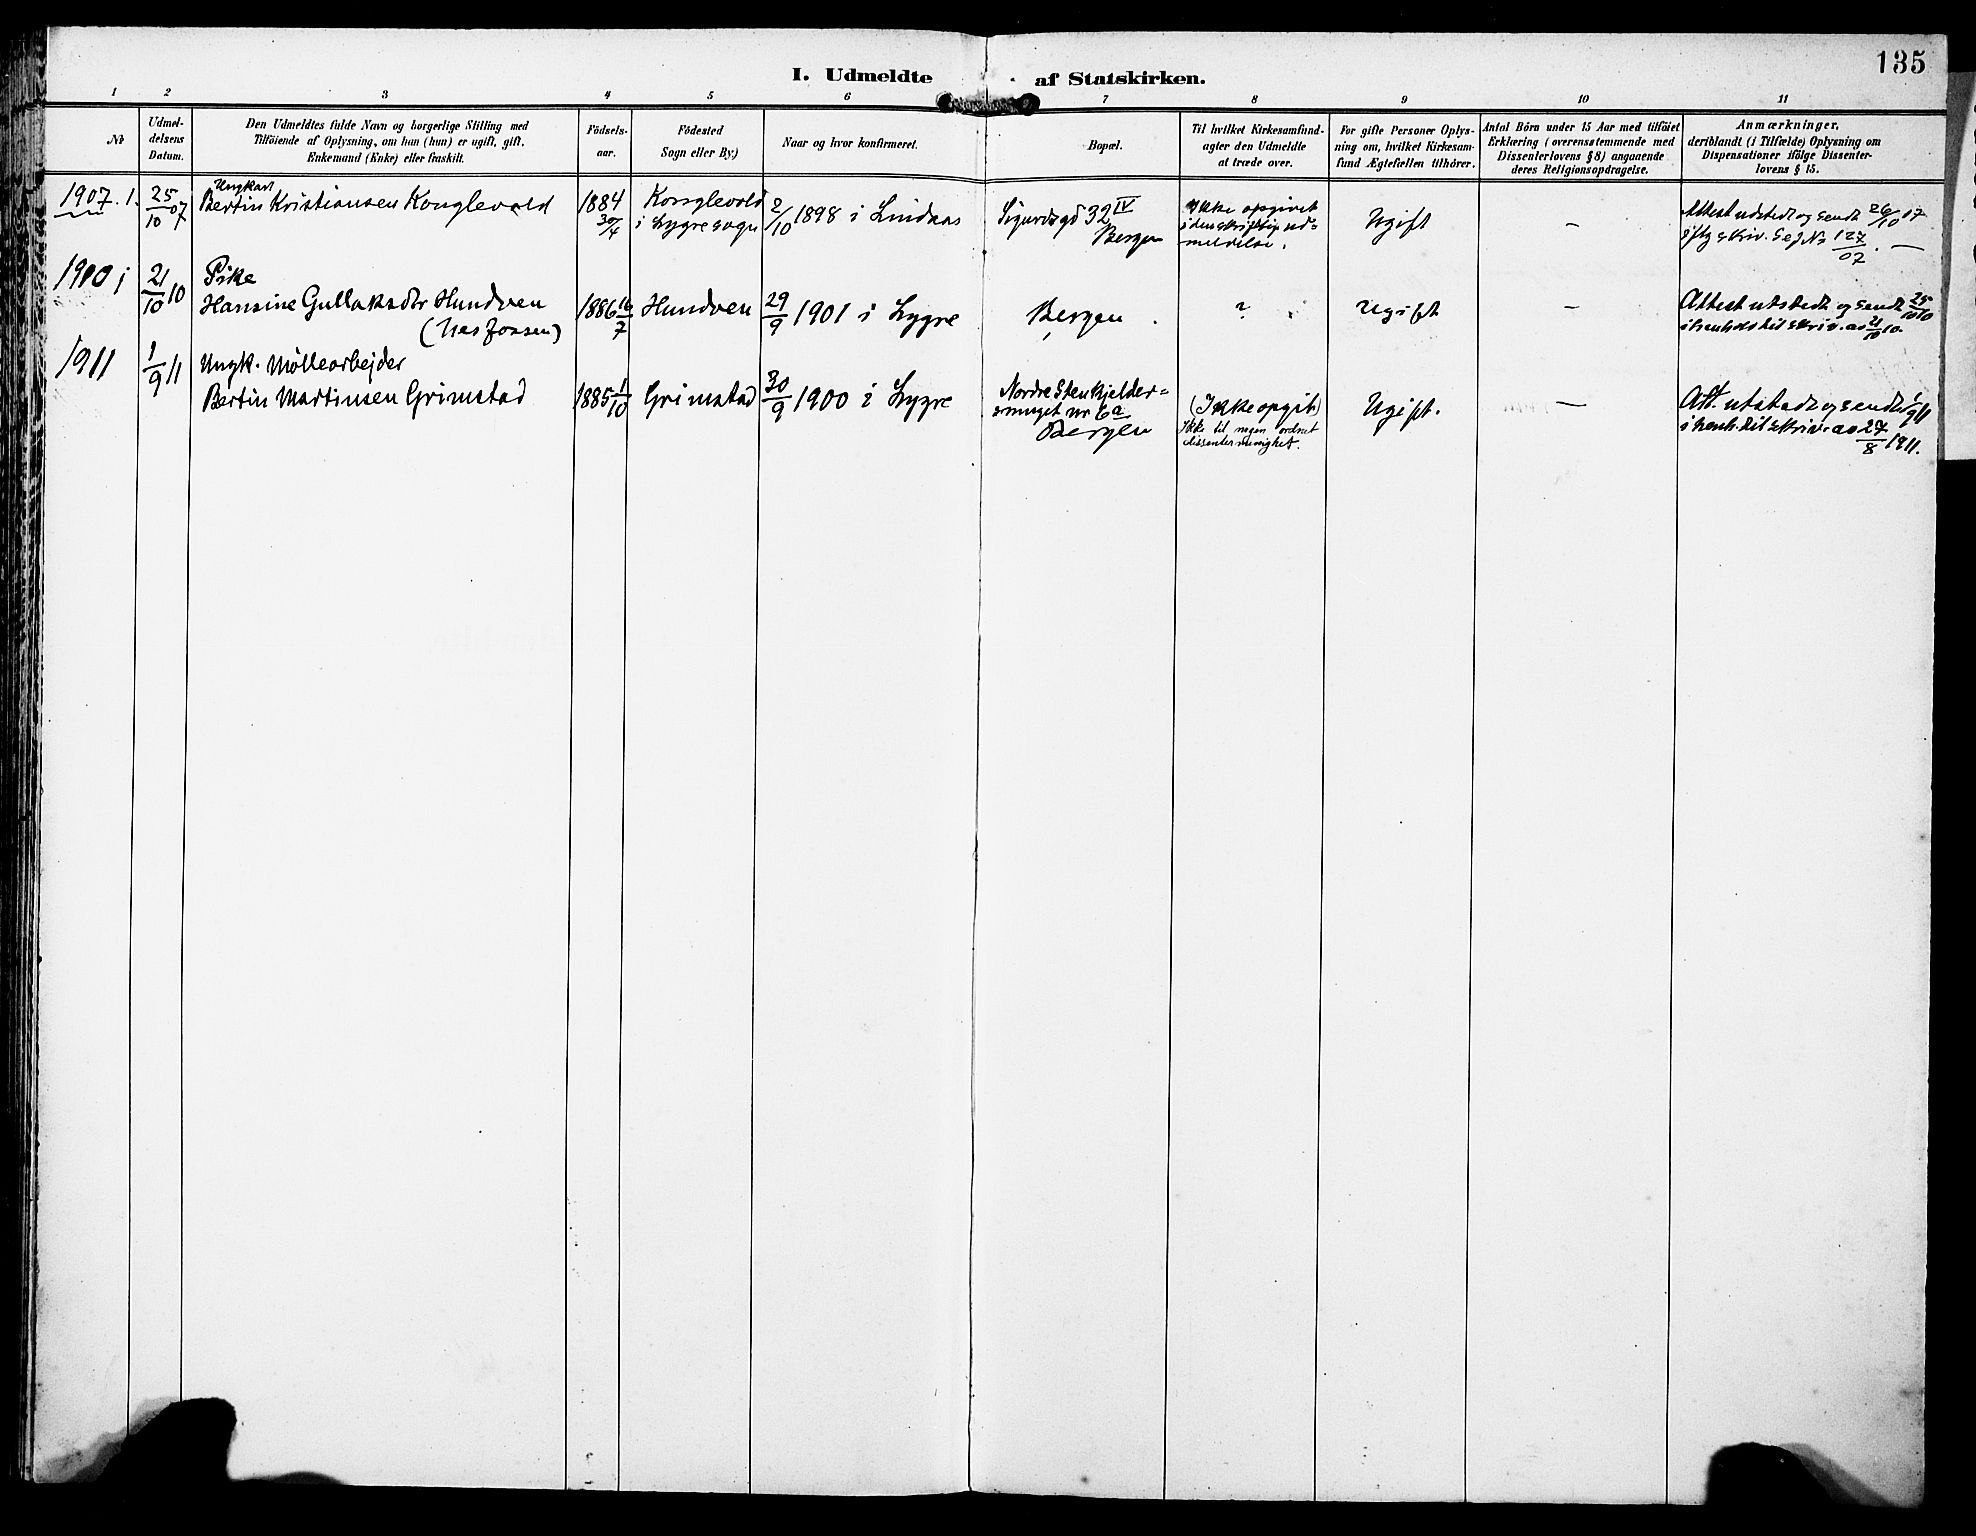 135
I. Udmeldte af Statskirken.
1 2 3 4 5 6 7 8 9 10 11
No
Udmel-
delsens
Datum.
Den Udmeldtes fulde Navn og borgerlige Stilling med
Tilföiende af Oplysning, om han (hun) er ugift, gift,
Enkemand (Enke) eller fraskilt.
Födsels-
aar.
Födested
Sogn eller By.)
Naar og hvor konfirmeret.
Bopæl.
Til hvilket Kirkesamfund-
agter den Udmeldte
at træde over.
For gifte Personer Oplys-
ning om, hvilket Kirkesam-
fund Ægtefællen tilhörer.
Antal Börn under 15 Aar med tilföiet
Erklæring (overensstemmende med
Dissenterlovens § 8) angaaende
deres Religionsopdragelse.
Anmærkninger,
deriblandt (i Tilfælde) Oplysning om
Dispensationer ifölge Dissenter-
lovens § 15.
1907. 1.
25/10 07
Ungkarl
Bertin Kristiansen Konglevold
1884
30/4
Konglevold
i Lygre sogn
2/10 1898 i Lindaas
Sigurdsgd 32 IV
Bergen
Ikke opgivet
i den skriftlig ud-
meldelse.
Ugift
—
Attest udstedt og sendt 26/10 07
iflg skriv. Sef No 127/07. —
1910
21/10 10
Pike
Hansine Gullaksdtr Hundven
1886 16/7
Hundven
29/9 1901 i Lygre
Bergen
?
Ugift
—
Attest utstedt og sendt 25/10 10
i henhold til skriv. av 21/10 10.
1911
1/9 11
Ungk. Möllearbejder
Bertin Martinsen Grimstad
1885 1/10
Grimstad
30/9 1900 i Lygre
Nordre Stenkjelder-
smuget nr 6a
Bergen
(Ikke opgit)
Ikke til nogen ordnet
dissentermenighet.
Ugift.
—
Att. utstedt og sendt 1/9 11
i henh. til skriv. av 27/8 1911.